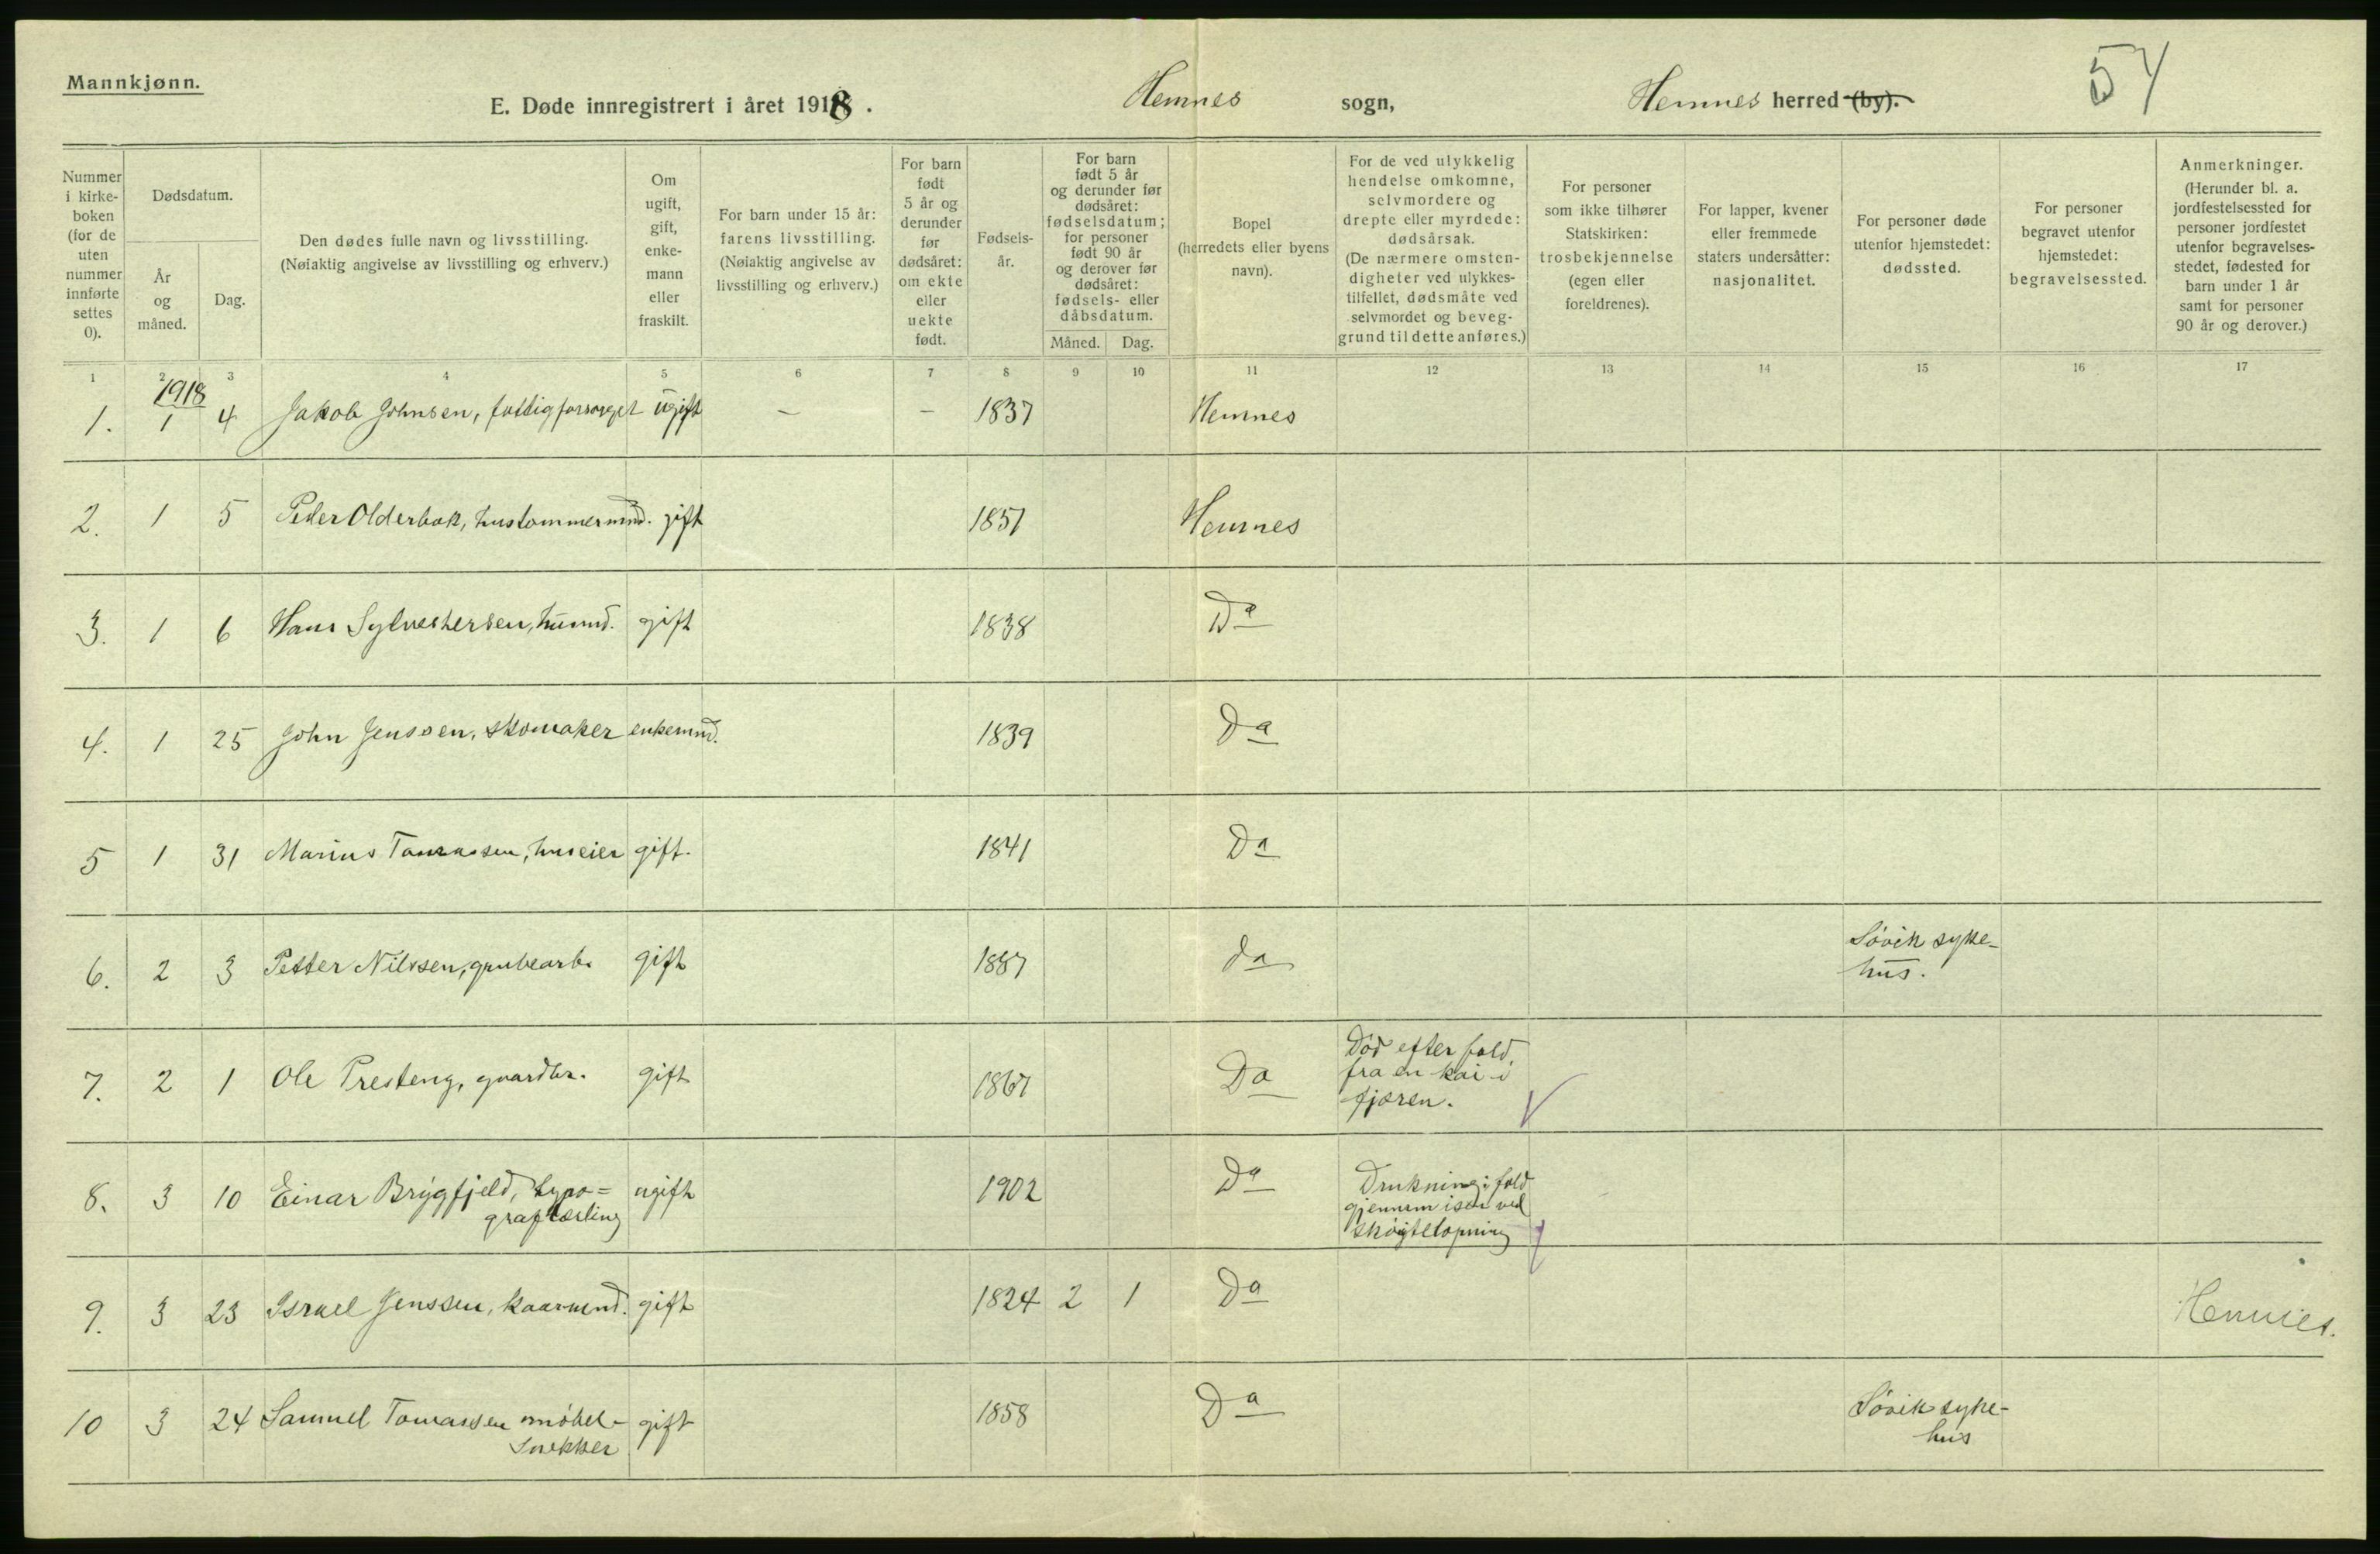 Mannkjønn.
E. Døde innregistrert i året 1918. Hemnes sogn, Hemnes herred (by). 54
Nummer i kirke-boken (for de uten nummer innførte settes 0).
Dødsdatum.
År og måned.
Dag.
Den dødes fulle navn og livsstilling.
(Nøiaktig angivelse av livsstilling og erhverv.)
Om ugift, gift, enke-mann eller fraskilt.
For barn under 15 år: farens livsstilling. (Nøiaktig angivelse av livsstilling og erhverv.)
For barn født 5 år og derunder før dødsåret: om ekte eller uekte født.
Fødsels-år.
For barn født 5 år og derunder før dødsåret: fødselsdatum; for personer født 90 år og derover før dødsåret: fødsels- eller dåbsdatum.
Måned. Dag.
Bopel (herredets eller byens navn).
For de ved ulykkelig hendelse omkomne, selvmordere og drepte eller myrdede: dødsårsak. (De nærmere omsten-digheter ved ulykkes-tilfellet, dødsmåte ved selvmordet og beveg-grund til dette anføres.)
For personer som ikke tilhører Statskirken: trosbekjennelse (egen eller foreldrenes).
For lapper, kvener eller fremmede staters undersåtter: nasjonalitet.
For personer døde utenfor hjemstedet: dødssted.
For personer begravet utenfor hjemstedet: begravelsessted.
Anmerkninger. (Herunder bl. a. jordfestelsessted for personer jordfestet utenfor begravelses-stedet, fødested for barn under 1 år samt for personer 90 år og derover.)
1 2 3 4 5 6 7 8 9 10 11 12 13 14 15 16 17
1918
1. 1 4 Jakob Johnsen, fattigforsørget ugift — — 1837 Hemnes
2. 1 5 Peder Olderbak, hustømmermnd. gift 1851 Hemnes
3. 1 6 Hans Sylvestersen, husmd. gift 1838 Da
4. 1 25 John Jenssen, skomaker enkemnd. 1839 Da
5 1 31 Marius Tomassen, huseier gift. 1841 Da
6. 2 3 Petter Nilssen, grubearb. gift 1887 da Søvik syke-
hus.
7. 2 1 Ole Presteng, gaardbr. gift 1867 Da Død efter fald
fra en kai i
fjæren.
8. 3 10 Einar Brygfjeld, typo= ugift 1902 Da Drukning; fald
graflærling gjennem isen ved
skøiteløpning
9. 3 23 Israel Jenssen, kaarmnd. gift 1824 2 1 Da Hemnes.
10 3 24 Samuel Tomassen møbel- gift 1858 Da Søvik syke-
snekker hus